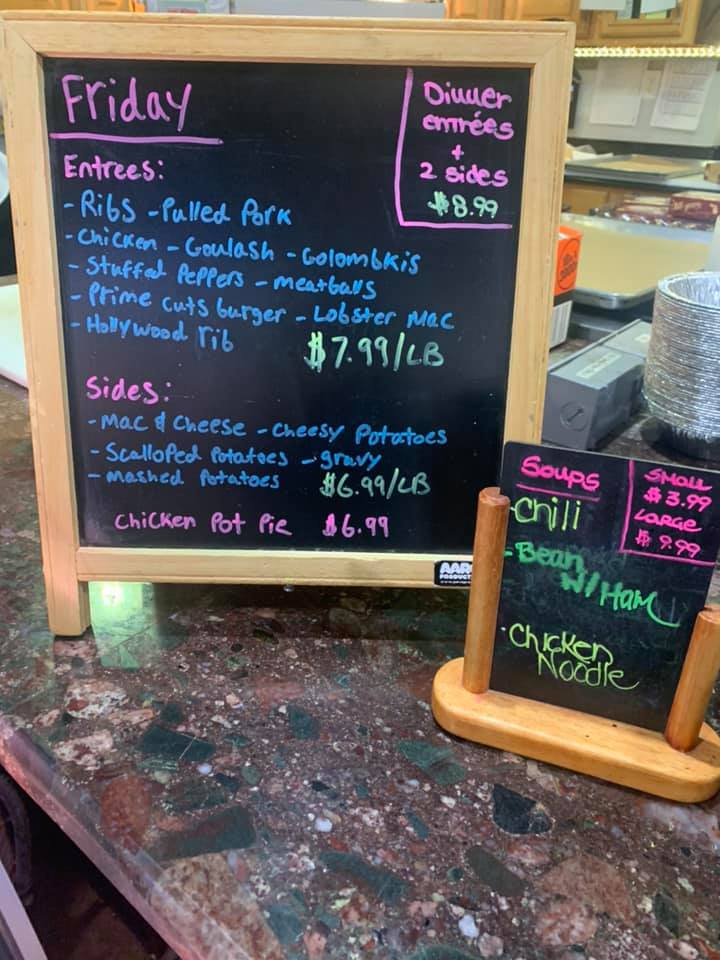 Friday
Entrees:
- Ribs - Pulled Pork
- Chicken - Goulash - Golombkis
- Stuffed Peppers - meatballs
- Prime cuts burger - Lobster Mac
- Hollywood rib
$7.99/LB
Dinner
entrées
+
2 sides
$8.99
Sides:
- Mac & Cheese - Cheesy Potatoes
- Scalloped Potatoes - gravy
- mashed Potatoes
$6.99/LB
Chicken Pot Pie $6.99
Soups
Small
$3.99
Large
$9.99
- Chili
- Bean
w/ Ham
- Chicken
Noodle